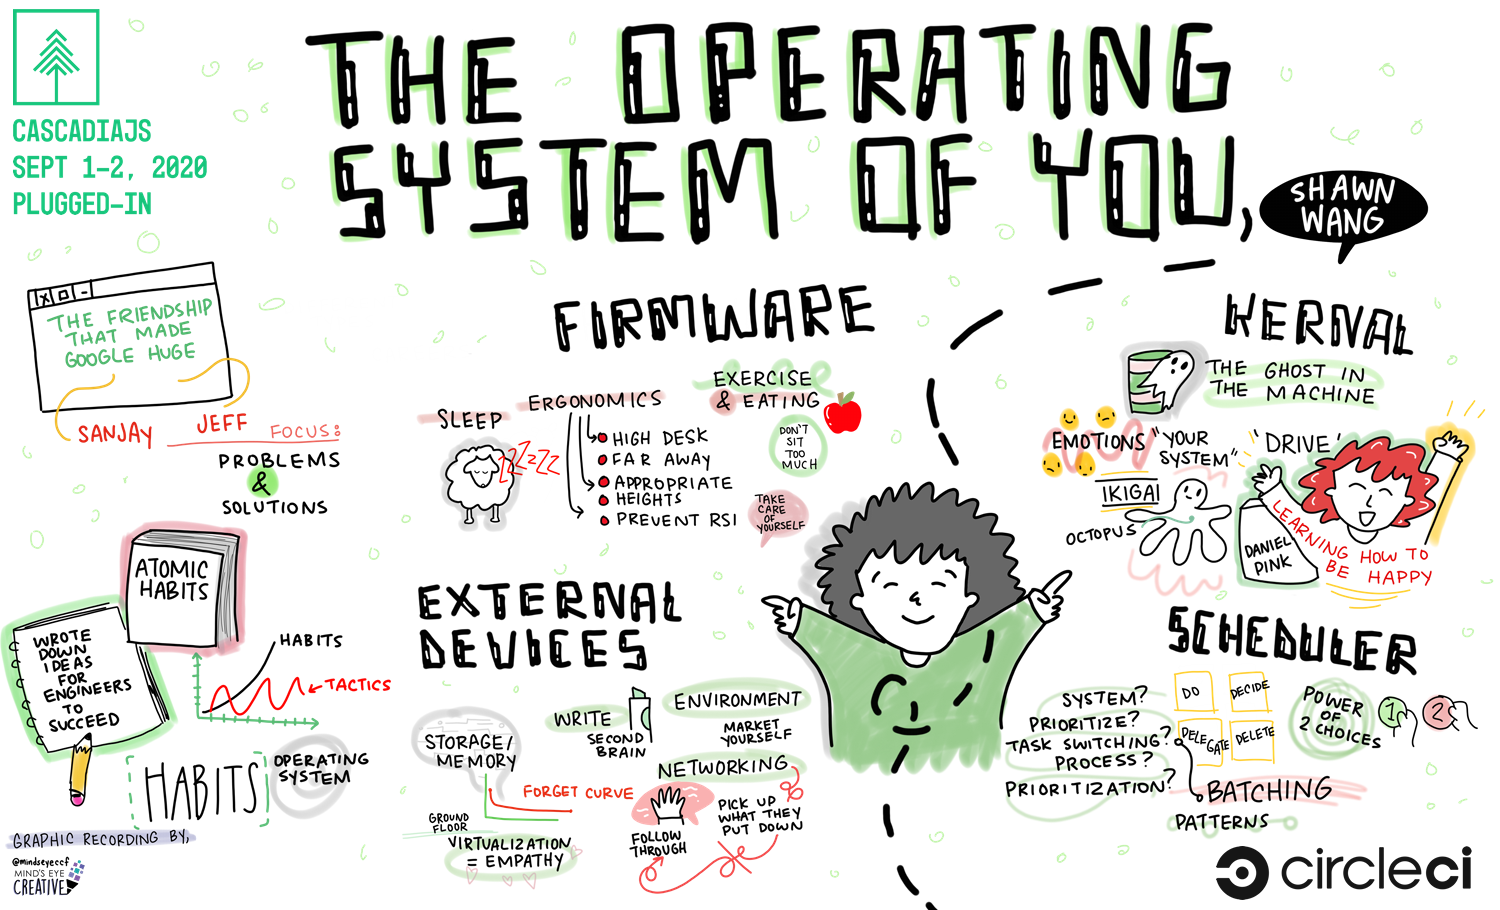 CASCADIAJS
SEPT 1-2, 2020
PLUGGED-IN
THE OPERATING
SYSTEM OF YOU,
SHAWN
WANG
X
-
THE FRIENDSHIP
THAT MADE
GOOGLE HUGE
SANJAY
JEFF
FOCUS:
PROBLEMS
&
SOLUTIONS
ATOMIC
HABITS
WROTE
DOWN
IDEAS
FOR
ENGINEERS
TO
SUCCEED
HABITS
TACTICS
[HABITS]
OPERATING
SYSTEM
GRAPHIC RECORDING BY,
@mindseyeccf
MIND'S EYE
CREATIVE
FIRMWARE
SLEEP
ZZZZZZ
ERGONOMICS
HIGH DESK
FAR AWAY
APPROPRIATE
HEIGHTS
PREVENT RSI
EXERCISE
& EATING
DON'T
SIT
TOO
MUCH
TAKE
CARE
OF
YOURSELF
EXTERNAL
DEVICES
STORAGE/
MEMORY
FORGET CURVE
GROUND
FLOOR
VIRTUALIZATION
= EMPATHY
WRITE
SECOND
BRAIN
ENVIRONMENT
MARKET
YOURSELF
NETWORKING
FOLLOW
THROUGH
PICK UP
WHAT THEY
PUT DOWN
KERNAL
THE GHOST IN
THE MACHINE
EMOTIONS
"YOUR
SYSTEM"
IKIGAI
OCTOPUS
'DRIVE'
DANIEL
PINK
LEARNING HOW TO
BE HAPPY
SCHEDULER
SYSTEM?
PRIORITIZE?
TASK SWITCHING?
PROCESS?
PRIORITIZATION?
DO
DECIDE
DELEGATE
DELETE
BATCHING
PATTERNS
POWER
OF
2 CHOICES
1
2
circleci